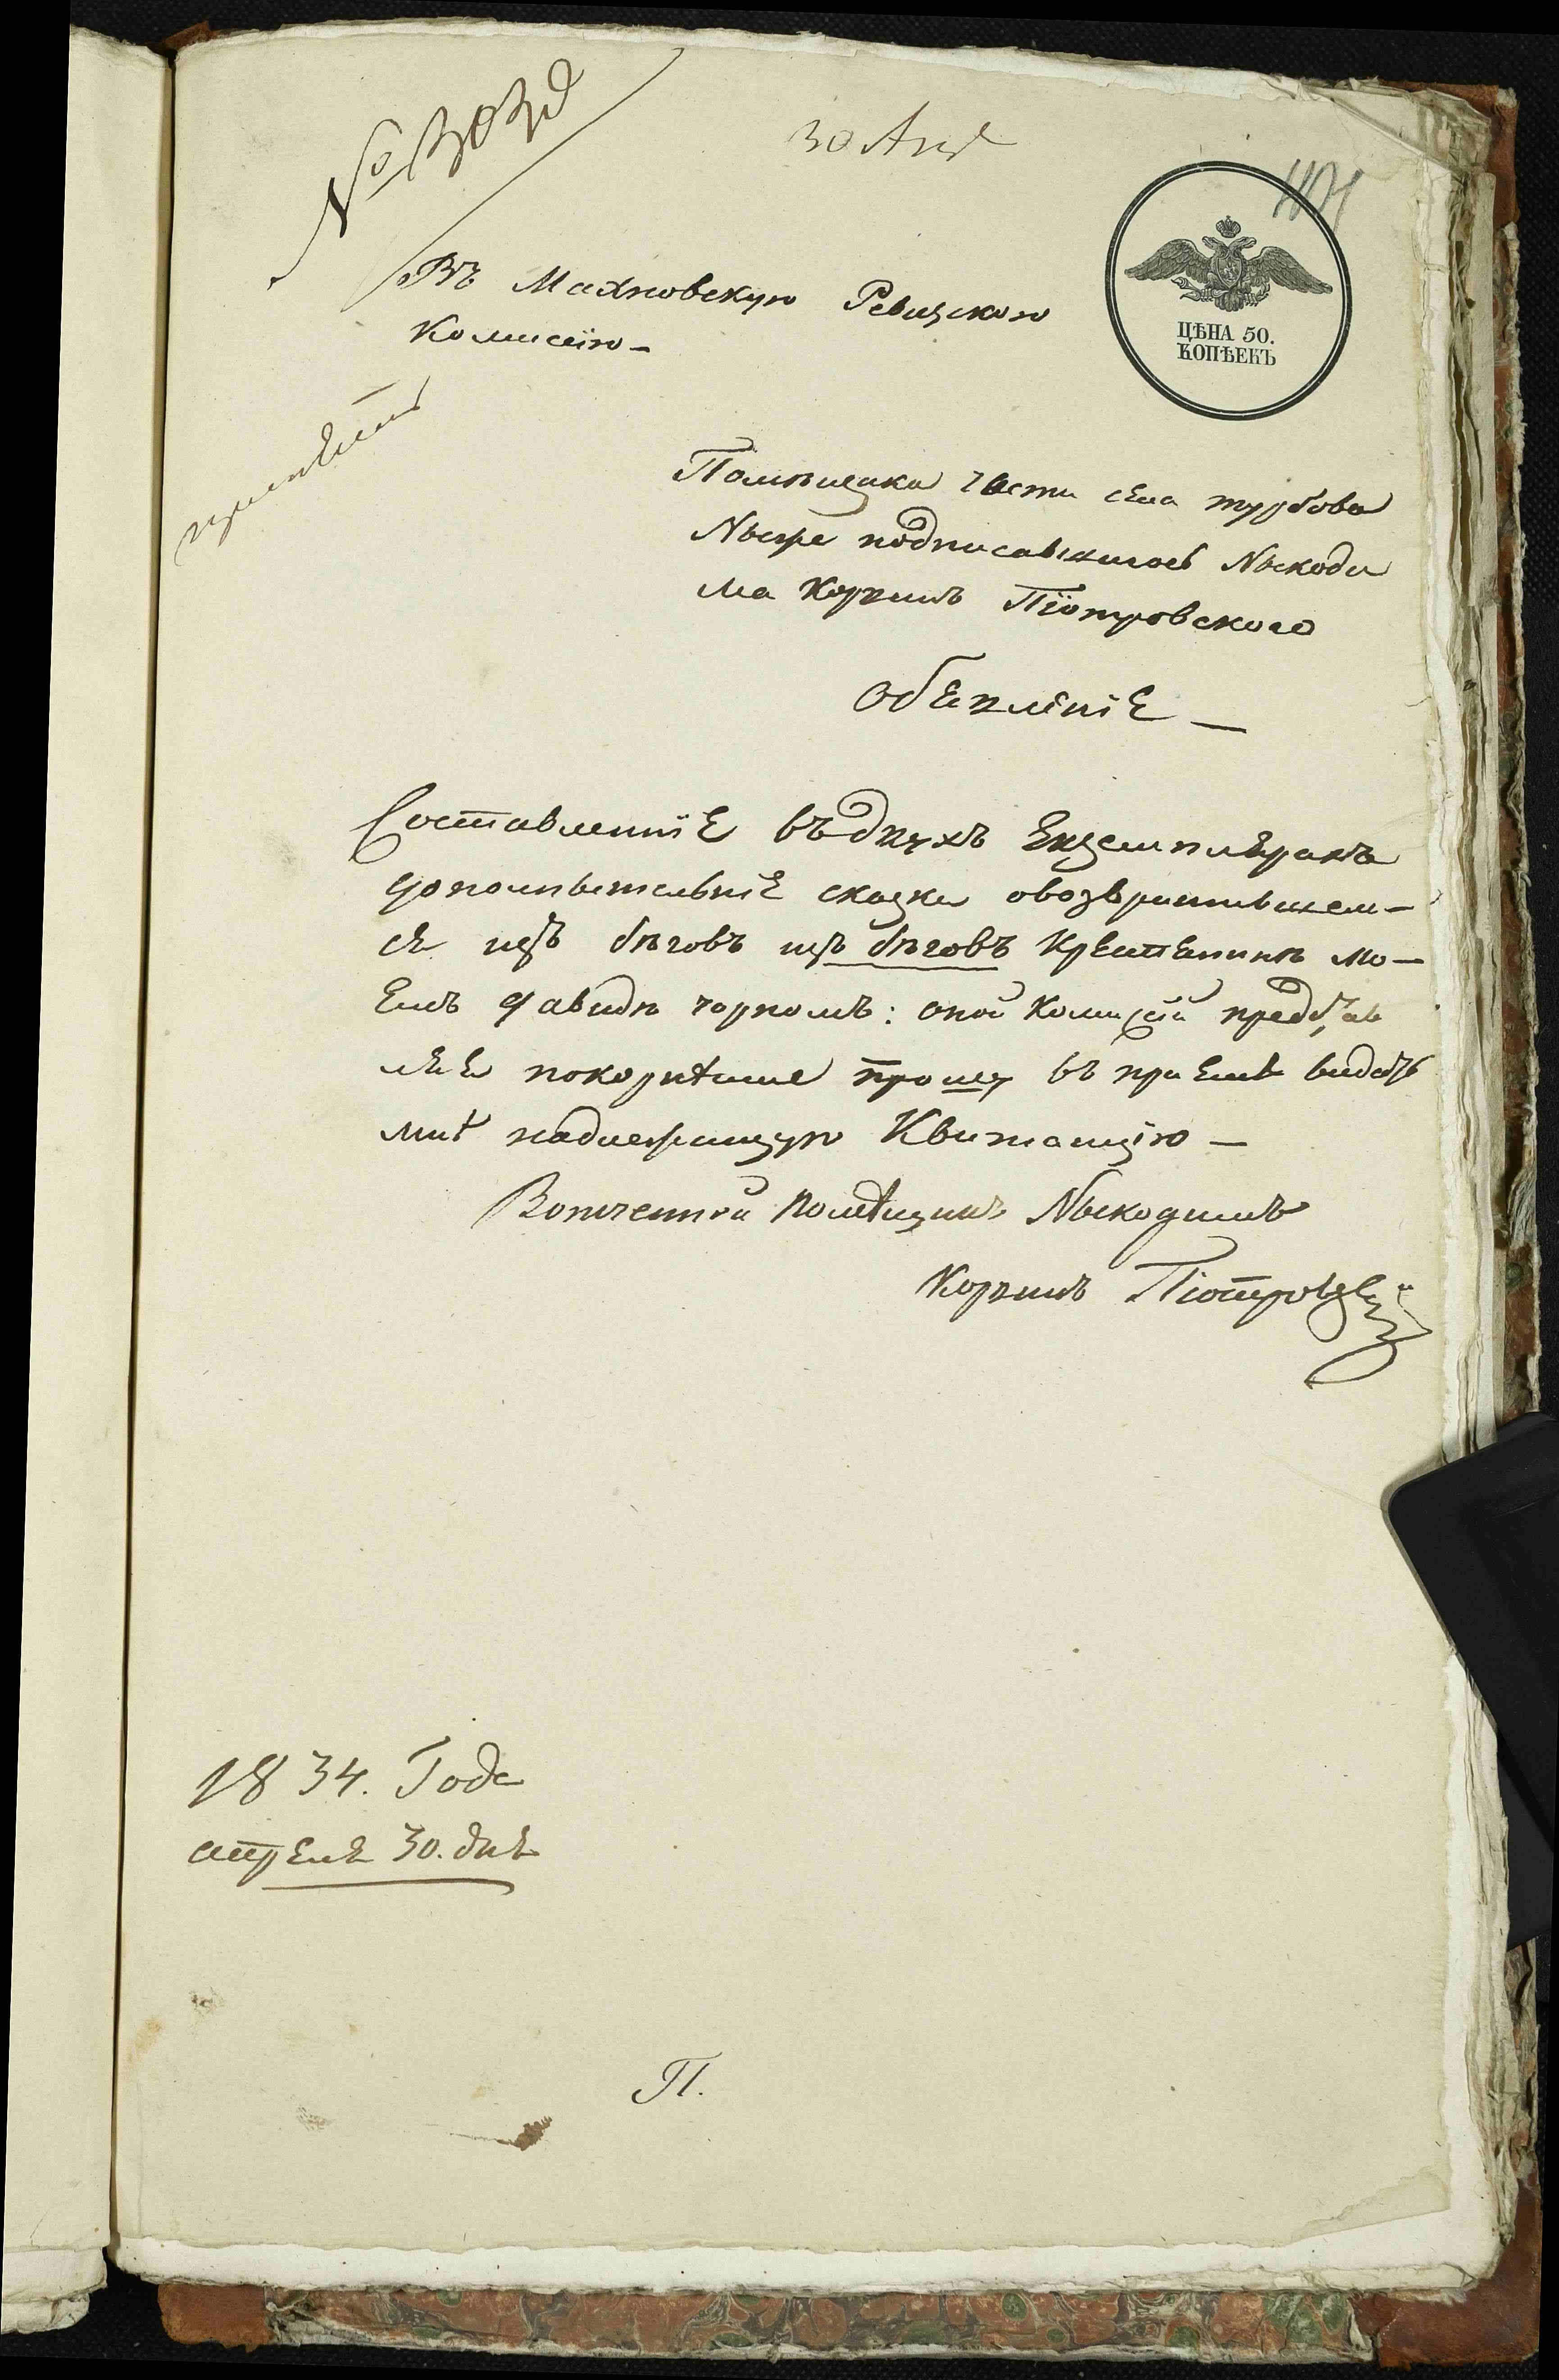 № 3038
30 Апр
ЦѢНА 50.
КОПѢЕКЪ
Въ Махновскую Ревизскою
Комисію –
Помѣщика части села турбова
Ныже подписавшигось Ныкоди
ма Корвинъ Піотровского
Обявленіе –
Составленніе въ двухъ Екземплярахъ
дополнытельніе сказки овозвратившем-
ся изъ бѣговъ изъ бѣговъ Крестянинѣ мо-
емъ давидѣ чорномъ: оной Комисій представ
ляя покорнѣише прошу въ приемѣ видать
мнѣ надлежащую Квитанцію –
Вотченной Помѣщикъ Ныкодимъ
Корвинъ Піотровскій
1834. Года
апреля 30. дня
П.